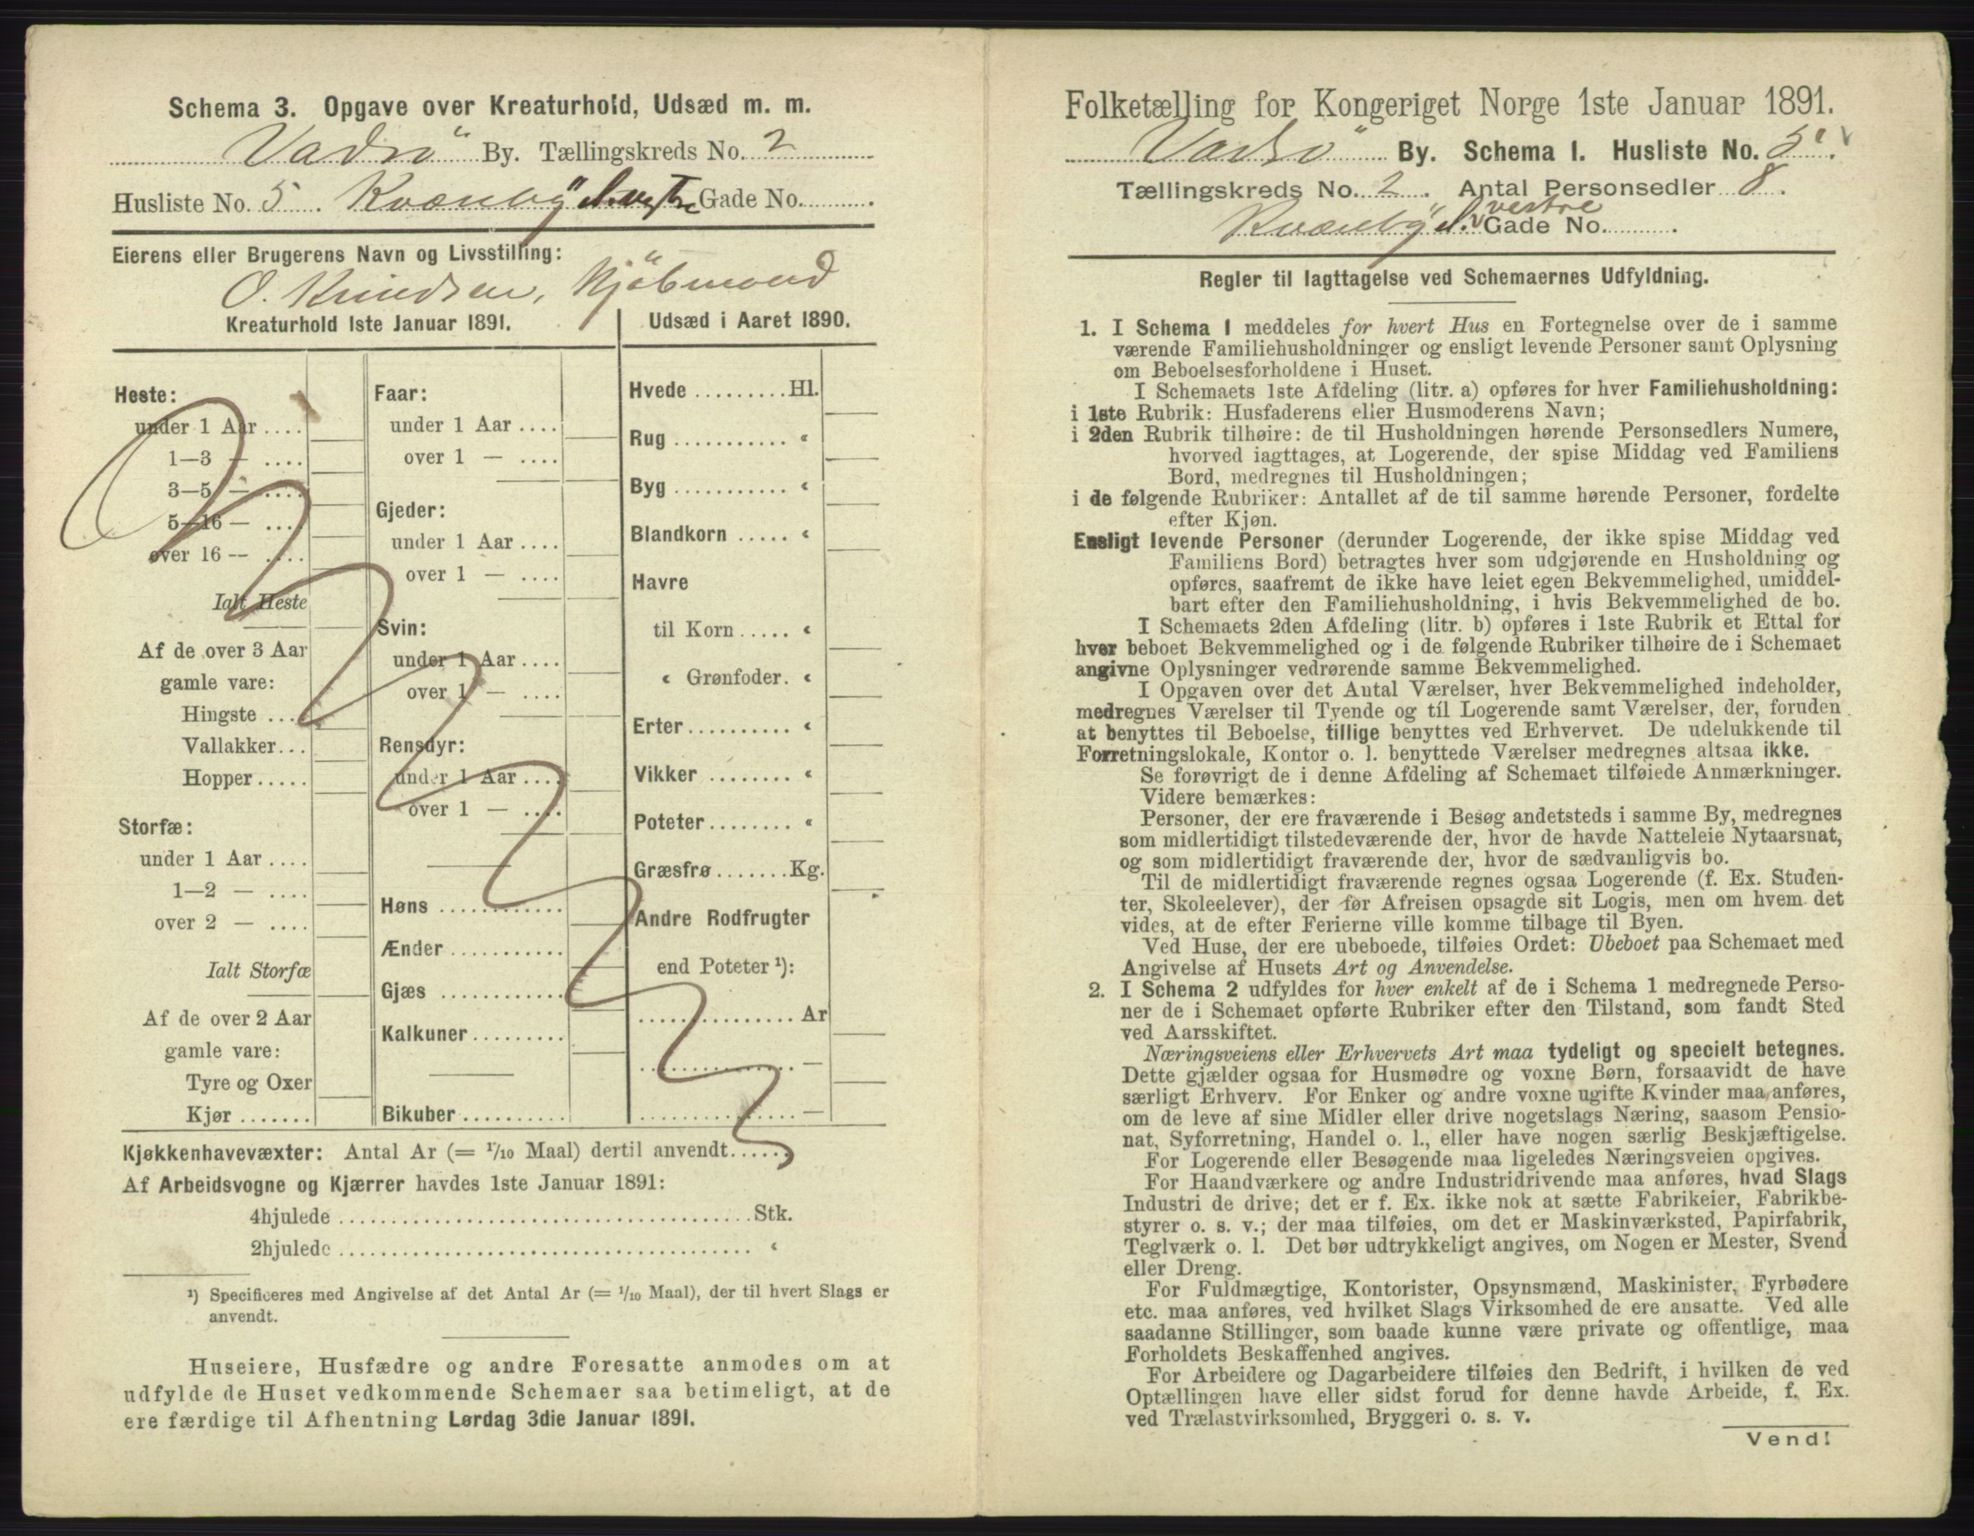 Schema 3. Opgave over Kreaturhold, Udsæd m. m.
Vadsö By. Tællingskreds No. 2
Husliste No. 5. Kvænby vestre Gade No.
Eierens eller Brugerens Navn og Livsstilling:
O. Knudsen, Kjöbmand
Kreaturhold 1ste Januar 1891.
Heste:
under 1 Aar ....
1—3 — ....
3—5 — ....
5—16 — ....
over 16 — ....
Ialt Heste
Af de over 3 Aar
gamle vare:
Hingste ...
Vallakker...
Hopper.....
Storfæ:
under 1 Aar ....
1—2 — ....
over 2 — ....
Ialt Storfæ
Af de over 2 Aar
gamle vare:
Tyre og Oxer
Kjør .......
Faar:
under 1 Aar ....
over 1 — ....
Gjeder:
under 1 Aar ....
over 1 — ....
Svin:
under 1 Aar ....
over 1 — ....
Rensdyr:
under 1 Aar ....
over 1 — ....
Høns ............
Ænder ...........
Gjæs ............
Kalkuner .........
Bikuber ..........
Udsæd i Aaret 1890.
Hvede .........Hl.
Rug ........... «
Byg ........... «
Blandkorn ..... «
Havre
til Korn ..... «
« Grønfoder. «
Erter .......... «
Vikker ........ «
Poteter ........ «
Græsfrø .......Kg.
Andre Rodfrugter
end Poteter ¹):
................Ar
................—
................—
Kjøkkenhavevæxter: Antal Ar (= 1/10 Maal) dertil anvendt......
Af Arbeidsvogne og Kjærrer havdes 1ste Januar 1891:
4hjulede ........................................Stk.
2hjulede ........................................ «
¹) Specificeres med Angivelse af det Antal Ar (= 1/10 Maal), der til hvert Slags er
anvendt.
Huseiere, Husfædre og andre Foresatte anmodes om at
udfylde de Huset vedkommende Schemaer saa betimeligt, at de
ere færdige til Afhentning Lørdag 3die Januar 1891.
Folketælling for Kongeriget Norge 1ste Januar 1891.
Vadsö By. Schema I. Husliste No. 5.
Tællingskreds No. 2. Antal Personsedler 8.
Kvænby vestre Gade No. .
Regler til Iagttagelse ved Schemaernes Udfyldning.
1. I Schema 1 meddeles for hvert Hus en Fortegnelse over de i samme
værende Familiehusholdninger og ensligt levende Personer samt Oplysning
om Beboelsesforholdene i Huset.
I Schemaets 1ste Afdeling (litr. a) opføres for hver Familiehusholdning:
i 1ste Rubrik: Husfaderens eller Husmoderens Navn;
i 2den Rubrik tilhøire: de til Husholdningen hørende Personsedlers Numere,
hvorved iagttages, at Logerende, der spise Middag ved Familiens
Bord, medregnes til Husholdningen;
i de følgende Rubriker: Antallet af de til samme hørende Personer, fordelte
efter Kjøn.
Ensligt levende Personer (derunder Logerende, der ikke spise Middag ved
Familiens Bord) betragtes hver som udgjørende en Husholdning og
opføres, saafremt de ikke have leiet egen Bekvemmelighed, umiddel-
bart efter den Familiehusholdning, i hvis Bekvemmelighed de bo.
I Schemaets 2den Afdeling (litr. b) opføres i 1ste Rubrik et Ettal for
hver beboet Bekvemmelighed og i de følgende Rubriker tilhøire de i Schemaet
angivne Oplysninger vedrørende samme Bekvemmelighed.
I Opgaven over det Antal Værelser, hver Bekvemmelighed indeholder,
medregnes Værelser til Tyende og til Logerende samt Værelser, der, foruden
at benyttes til Beboelse, tillige benyttes ved Erhvervet. De udelukkende til
Forretningslokale, Kontor o. l. benyttede Værelser medregnes altsaa ikke.
Se forøvrigt de i denne Afdeling af Schemaet tilføiede Anmærkninger.
Videre bemærkes:
Personer, der ere fraværende i Besøg andetsteds i samme By, medregnes
som midlertidigt tilstedeværende der, hvor de havde Natteleie Nytaarsnat,
og som midlertidigt fraværende der, hvor de sædvanligvis bo.
Til de midlertidigt fraværende regnes ogsaa Logerende (f. Ex. Studen-
ter, Skoleelever), der før Afreisen opsagde sit Logis, men om hvem det
vides, at de efter Ferierne ville komme tilbage til Byen.
Ved Huse, der ere ubeboede, tilføies Ordet: Ubeboet paa Schemaet med
Angivelse af Husets Art og Anvendelse.
2. I Schema 2 udfyldes for hver enkelt af de i Schema 1 medregnede Perso-
ner de i Schemaet opførte Rubriker efter den Tilstand, som fandt Sted
ved Aarsskiftet.
Næringsveiens eller Erhvervets Art maa tydeligt og specielt betegnes.
Dette gjælder ogsaa for Husmødre og voxne Børn, forsaavidt de have
særligt Erhverv. For Enker og andre voxne ugifte Kvinder maa anføres,
om de leve af sine Midler eller drive nogetslags Næring, saasom Pensio-
nat, Syforretning, Handel o. l., eller have nogen særlig Beskjæftigelse.
For Logerende eller Besøgende maa ligeledes Næringsveien opgives.
For Haandværkere og andre Industridrivende maa anføres, hvad Slags
Industri de drive; det er f. Ex. ikke nok at sætte Fabrikeier, Fabrikbe-
styrer o. s. v.; der maa tilføies, om det er Maskinværksted, Papirfabrik,
Teglværk o. l. Det bør udtrykkeligt angives, om Nogen er Mester, Svend
eller Dreng.
For Fuldmægtige, Kontorister, Opsynsmænd, Maskinister, Fyrbødere
etc. maa anføres, ved hvilket Slags Virksomhed de ere ansatte. Ved alle
saadanne Stillinger, som baade kunne være private og offentlige, maa
Forholdets Beskaffenhed angives.
For Arbeidere og Dagarbeidere tilføies den Bedrift, i hvilken de ved
Optællingen have eller sidst forud for denne havde Arbeide, f. Ex.
ved Trælastvirksomhed, Bryggeri o. s. v.
Vend!